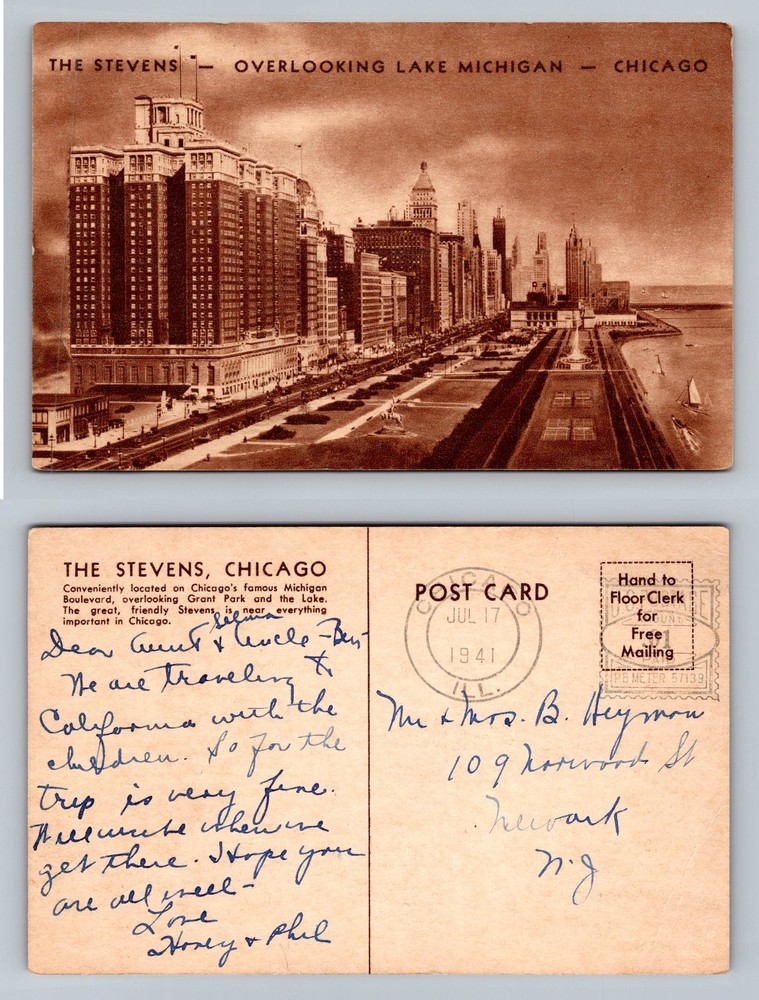 THE STEVENS — OVERLOOKING LAKE MICHIGAN — CHICAGO
THE STEVENS, CHICAGO
Conveniently located on Chicago's famous Michigan
Boulevard, overlooking Grant Park and the Lake.
The great, friendly Stevens is near everything
important in Chicago.
Selma
Dear Aunt & Uncle Ben
We are traveling to
California with the
children. So far the
trip is very fine.
Will write when we
get there. I Hope you
are all well-
Love
& Phil
POST CARD
CHICAGO
JUL 17
1941
ILL.
Hand to
Floor Clerk
for
Free
Mailing
PB METER 57139
Mr & Mrs. B. Heyman
109 Norwood St
Newark
N.J